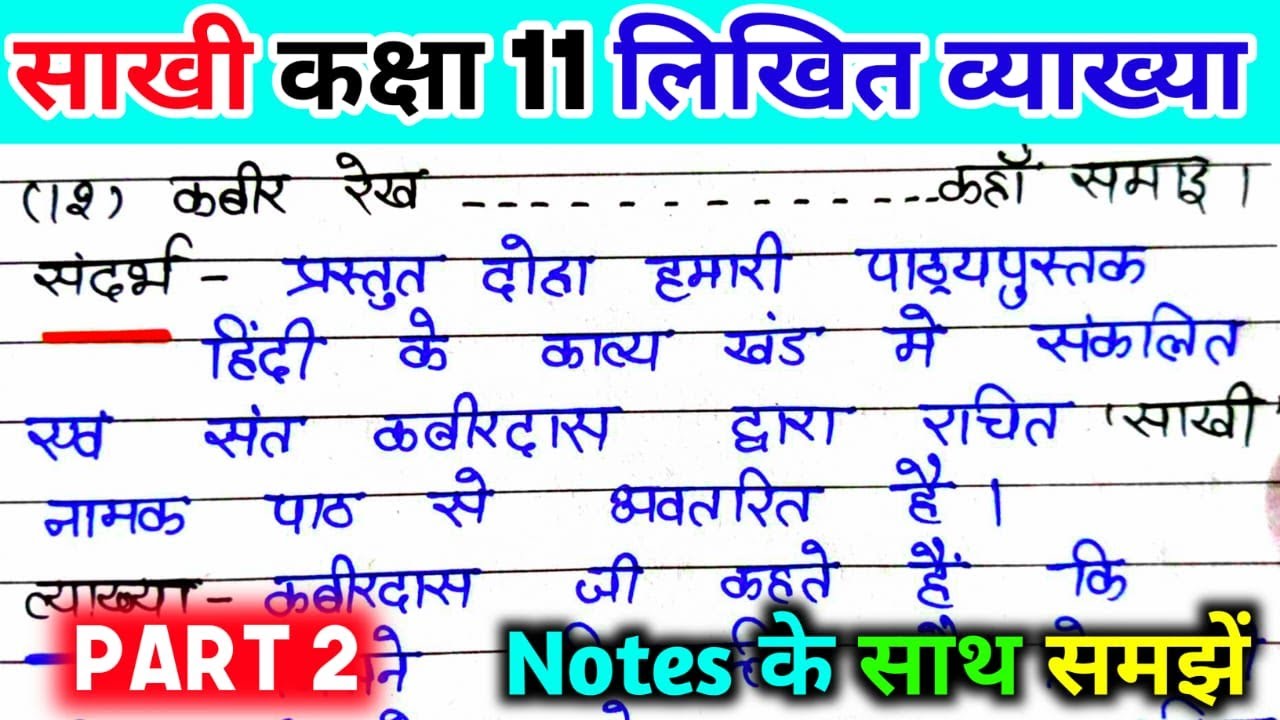 साखी कक्षा 11 लिखित व्याख्या
(१२) कबीर रेख --------------- कहाँ समाइ ।
संदर्भ - प्रस्तुत दोहा हमारी पाठ्यपुस्तक
हिंदी के काव्य खंड मे संकलित
एवं संत कबीरदास द्वारा रचित 'साखी
नामक पाठ से अवतरित है ।
व्याख्या - कबीरदास जी कहते हैं कि
PART 2 Notes के साथ समझें